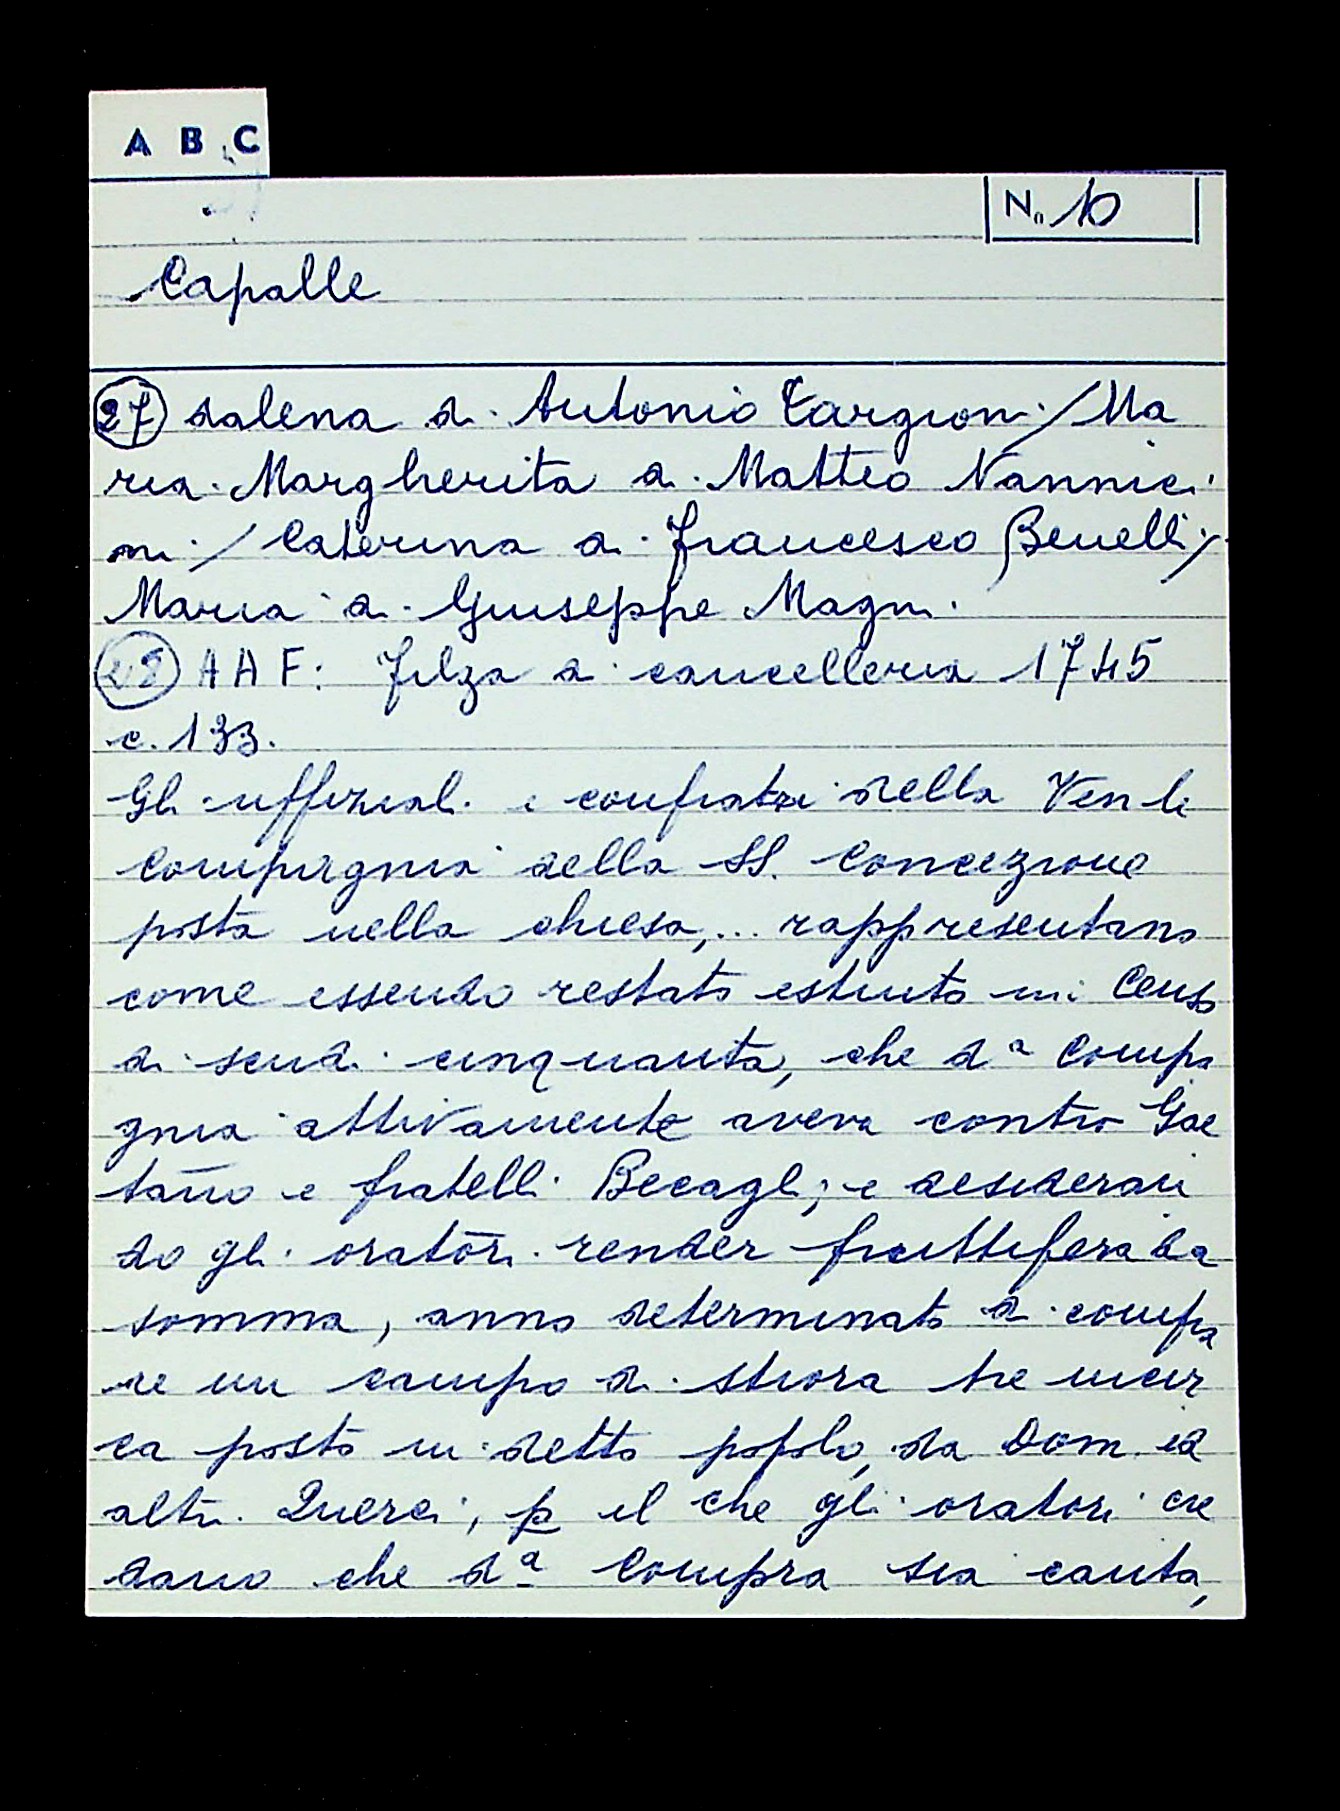 A B C
N. 10
Capalle
27 dalena di Antonio Targioni / Ma
ria Margherita di Matteo Nannici
ni / Caterina di Francesco Benelli /
Maria di Giuseppe Magni.
28 A A F: Filza di cancelleria 1745
c. 133.
Gli uffiziali e confratri della Ven le
Compagnia della SS. Concezione
posta nella chiesa,... rappresentano
come essendo restato estinto un Censo
di scudi cinquanta, che d.ª Compa
gnia attivamente aveva contro Gae
tano e fratelli Becagli; e desideran
do gli oratori render fruttifera la
somma, anno determinato di compra
re un campo di stiora tre incir
ca posto in detto popolo, da Dom. ed
altri Querci, p il che gli oratori cre
dano che d.ª Compra sia cauta,